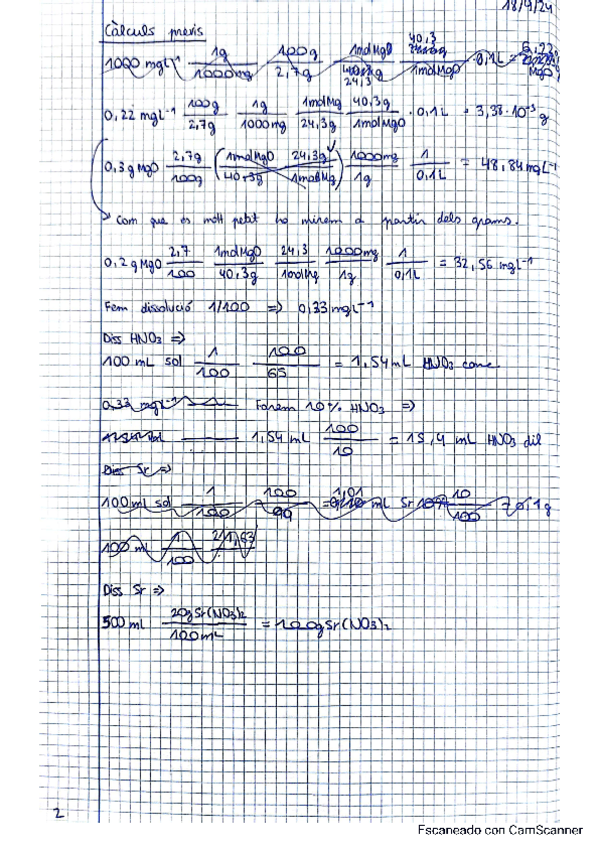 18/9/24
Càlculs previs
1000 mgL⁻¹ 1g/1000mg 100g/2,7g 1molMgO/24,3 40,3/1molMgO · 0,1L =
0,22 mgL⁻¹ 100g/2,7g 1g/1000mg 1molMg/24,3g 40,3g/1molMgO · 0,1L = 3,38·10⁻³ g
0,3 g MgO 2,7g/100g (1molMgO/40,3g 24,3g/1molMg) 1000mg/1g 1/0,1L = 48,84 mgL⁻¹
Com que és molt petit ho mirem a partir dels grams.
0,2 g MgO 2,7/100 1molMgO/40,3g 24,3/1molMg 1000mg/1g 1/0,1L = 32,56 mgL⁻¹
Fem dissolució 1/100 => 0,33 mgL⁻¹
Diss HNO₃ =>
100 mL sol 1/100 100/65 = 1,54 mL HNO₃ conc.
0,33 mgL⁻¹ Farem 10% HNO₃ =>
1,54 mL 100/10 = 15,4 mL HNO₃ dil
Diss Sr =>
100 ml sol 1/100 100/99 = 1,01 mL Sr 10/100 0,1 g
100 ml 1/100
Diss Sr =>
500 ml 20g Sr(NO₃)₂/100mL = 100g Sr(NO₃)₂
2
Escaneado con CamScanner